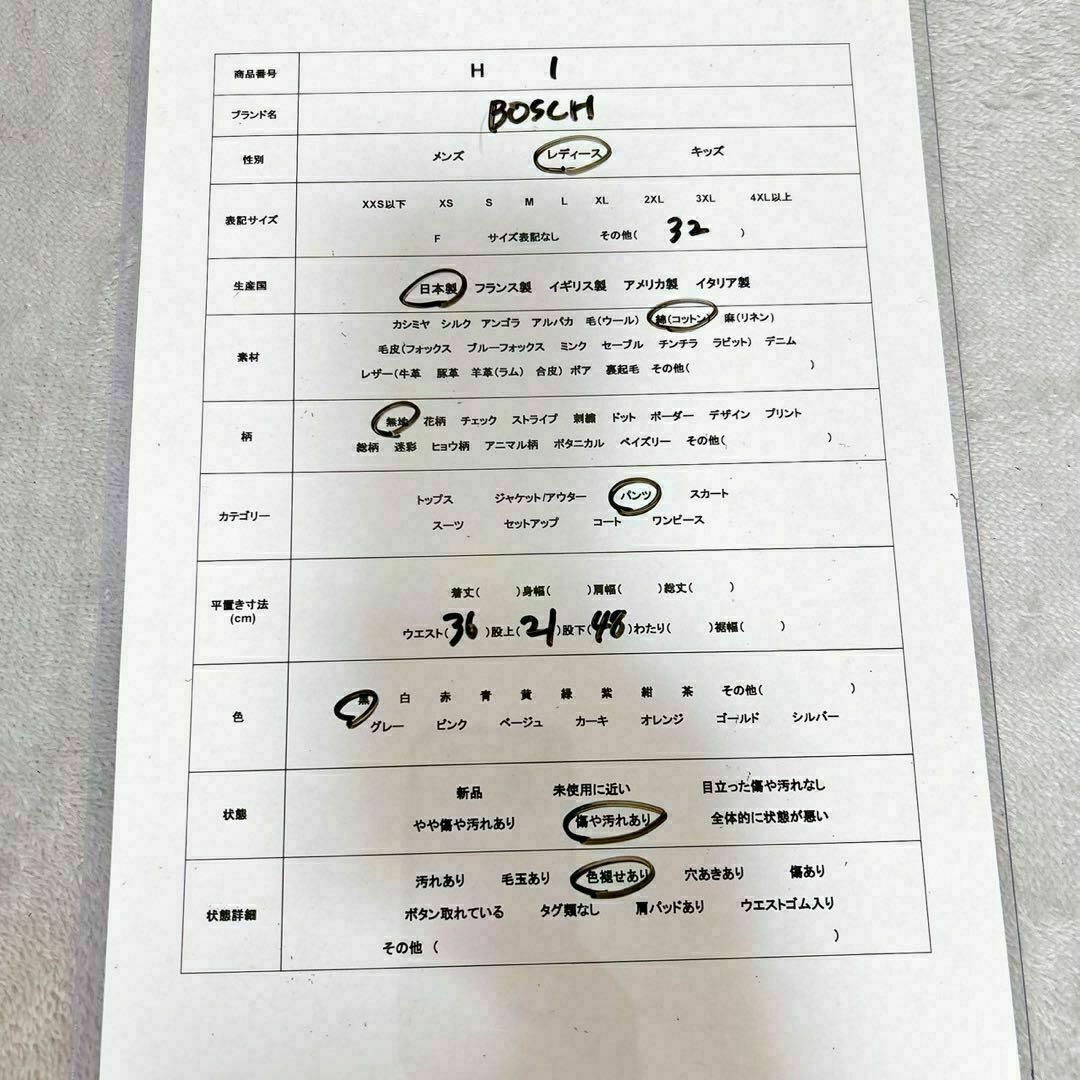 商品番号 H 1
ブランド名 BOSCH
性別 メンズ レディース キッズ
表記サイズ
XXS以下 XS S M L XL 2XL 3XL 4XL以上
F サイズ表記なし その他( 32 )
生産国 日本製 フランス製 イギリス製 アメリカ製 イタリア製
素材
カシミヤ シルク アンゴラ アルパカ 毛(ウール) 綿(コットン) 麻(リネン)
毛皮(フォックス ブルーフォックス ミンク セーブル チンチラ ラビット) デニム
レザー(牛革 豚革 羊革(ラム) 合皮) ボア 裏起毛 その他( )
柄
無地 花柄 チェック ストライプ 刺繍 ドット ボーダー デザイン プリント
総柄 迷彩 ヒョウ柄 アニマル柄 ボタニカル ペイズリー その他( )
カテゴリー
トップス ジャケット/アウター パンツ スカート
スーツ セットアップ コート ワンピース
平置き寸法
(cm)
着丈( )身幅( )肩幅( )総丈( )
ウエスト( 36 )股上( 21 )股下( 48 )わたり( )裾幅( )
色
黒 白 赤 青 黄 緑 紫 紺 茶 その他( )
グレー ピンク ベージュ カーキ オレンジ ゴールド シルバー
状態
新品 未使用に近い 目立った傷や汚れなし
やや傷や汚れあり 傷や汚れあり 全体的に状態が悪い
状態詳細
汚れあり 毛玉あり 色褪せあり 穴あきあり 傷あり
ボタン取れている タグ類なし 肩パッドあり ウエストゴム入り
その他 ( )